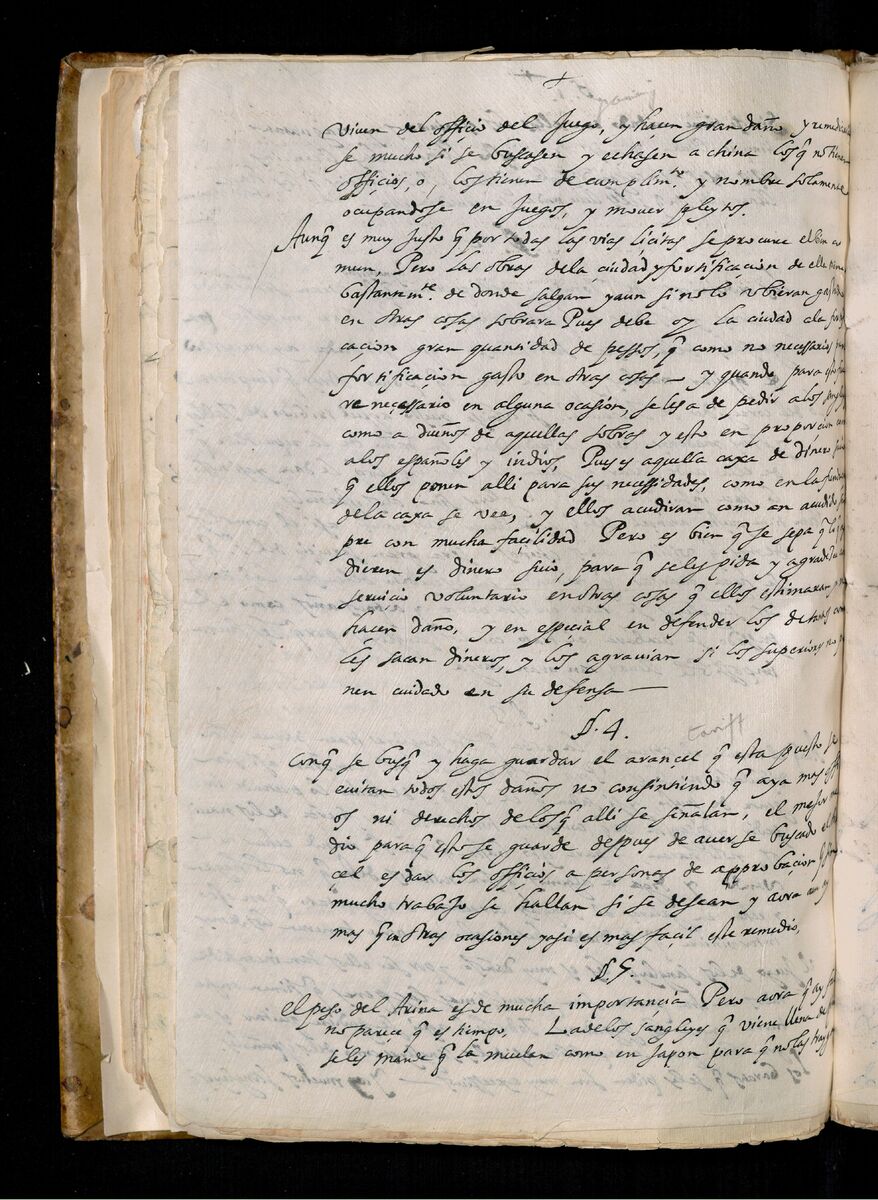 +
viven del officio del Juego, y hacen gran daño y remedia
se mucho si se buscasen y echasen a china los q̃ no tienen
officios, o, los tienen de cumplimto. y nombre solamente
ocupandose en Juegos, y mover pleytos.
Aunq̃ es muy Justo q̃ por todas las vias licitas se procure el bien co
mun, Pero las obras dela ciudad y fortificacion de ella tiene
bastantemte. de donde salgan y aun si no lo vbieran gastado
en otras cosas sobrara Pues debe oy la ciudad ala forti
cacion gran quantidad de pessos, q̃ como no necessarios
fortificacion gasto en otras cosas — y quando para
re necessario en alguna ocasion, se les a de pedir a los
como a dueños de aquellas sobras y esto en proporcion
a los españoles y indios, Pues es aquella caxa de dinero
q̃ ellos ponen alli para sus necessidades, como en la
dela caxa se vee, y ellos acudiran como an acudido
pre con mucha facilidad Pero es bien q̃ se sepa q̃
dieren es dinero suio, para q̃ se les pida y agradezca
servicio voluntario en otras cosas q̃ ellos estimaran y
hacen daño, y en especial en defender los de
les sacan dineros, y los agravian si los superiores no
nen cuidado en su defensa —
§. 4.
tariff
Conq̃ se busq̃ y haga guardar el arancel q̃ esta puesto se
evitan todos estos daños no consintiendo q̃ aya mas offici
os ni derechos de los q̃ alli se señalan, el mejor me
dio para q̃ esto se guarde despues de averse buscado el
cel es dar los officios a personas de approbacion q̃
mucho trabajo se hallan si se desean y aora an
mas q̃ en otras ocasiones y asi es mas facil este remedio,
§. 5.
el peso del Arina es de mucha importancia Pero aora q̃ ay
no parece q̃ es tiempo, La de los sangleyes q̃ viene llena de
se les mande q̃ la muelan como en Japon para q̃ no las